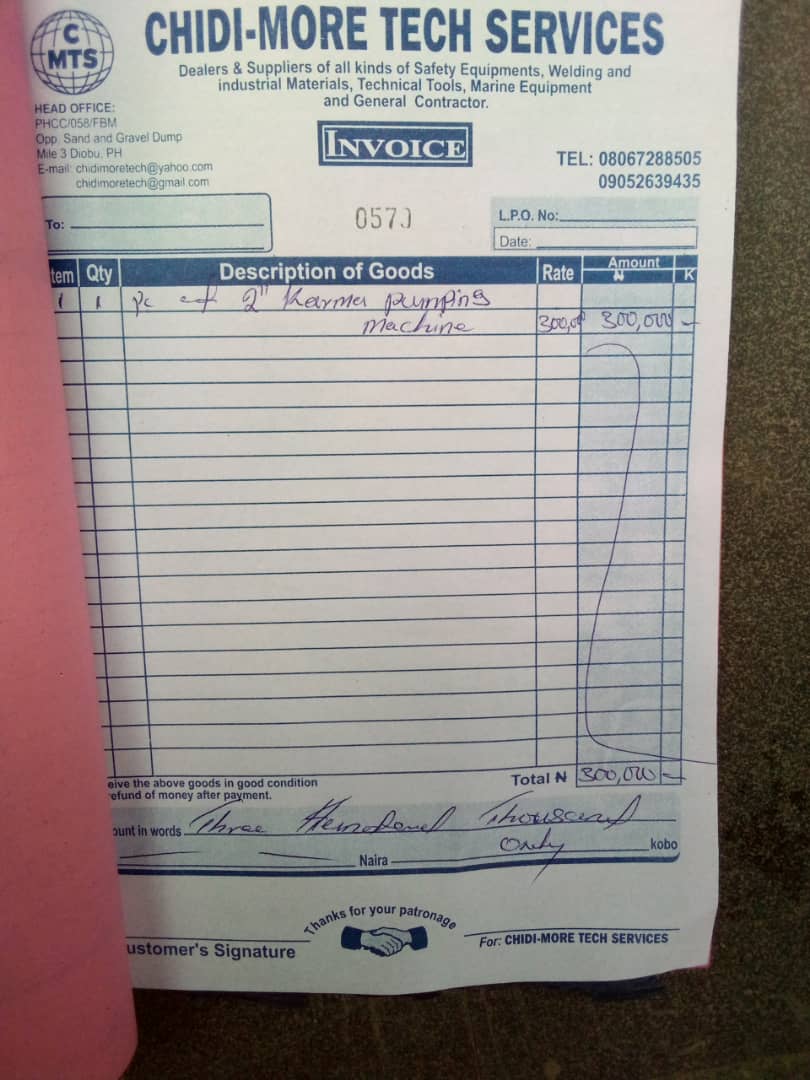 C
MTS
CHIDI-MORE TECH SERVICES
Dealers & Suppliers of all kinds of Safety Equipments, Welding and
industrial Materials, Technical Tools, Marine Equipment
and General Contractor.
HEAD OFFICE:
PHCC/058/FBM
Opp. Sand and Gravel Dump
Mile 3 Diobu, PH
E-mail: chidimoretech@yahoo.com
chidimoretech@gmail.com
INVOICE
TEL: 08067288505
09052639435
To:
0570
L.P.O. No:
Date:
tem Qty Description of Goods Rate Amount ₦ K
1 1 pc of 2" Karma pumping
machine 300,000 300,000 -
Total ₦ 300,000 -
eive the above goods in good condition
efund of money after payment.
ount in words Three Hundred Thousand
Only kobo
Naira
Thanks for your patronage
ustomer's Signature
For: CHIDI-MORE TECH SERVICES